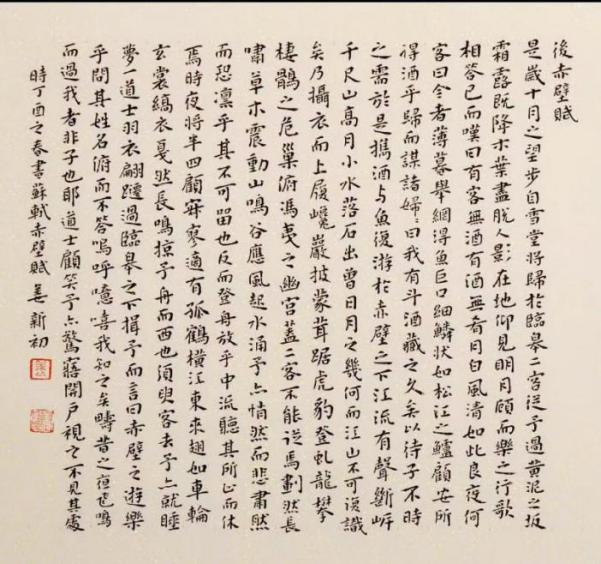 後赤壁賦
是歲十月之望步自雪堂將歸於臨皋二客從予過黃泥之坂
霜露既降木葉盡脫人影在地仰見明月顧而樂之行歌
相答已而嘆曰有客無酒有酒無肴月白風清如此良夜何
客曰今者薄暮舉網得魚巨口細鱗狀如松江之鱸顧安所
得酒乎歸而謀諸婦〻曰我有斗酒藏之久矣以待子不時
之需於是攜酒与魚復游於赤壁之下江流有聲斷岸
千尺山高月小水落石出曾日月之幾何而江山不可復識
矣乃攝衣而上履巉巖披蒙茸踞虎豹登虬龍攀
棲鶻之危巢俯馮夷之幽宮蓋二客不能從焉劃然長
嘯草木震動山鳴谷應風起水涌予亦悄然而悲肅然
而恐凜乎其不可留也反而登舟放乎中流聽其所止而休
焉時夜將半四顧寂寥適有孤鶴橫江東來翅如車輪
玄裳縞衣戛然長鳴掠予舟而西也須臾客去予亦就睡
夢一道士羽衣翩躚過臨皋之下揖予而言曰赤壁之遊樂
乎問其姓名俯而不答嗚呼噫嘻我知之矣疇昔之夜飛鳴
而過我者非子也耶道士顧笑予亦驚寤開戶視之不見其處
時丁酉之春書蘇軾赤壁賦 姜新初